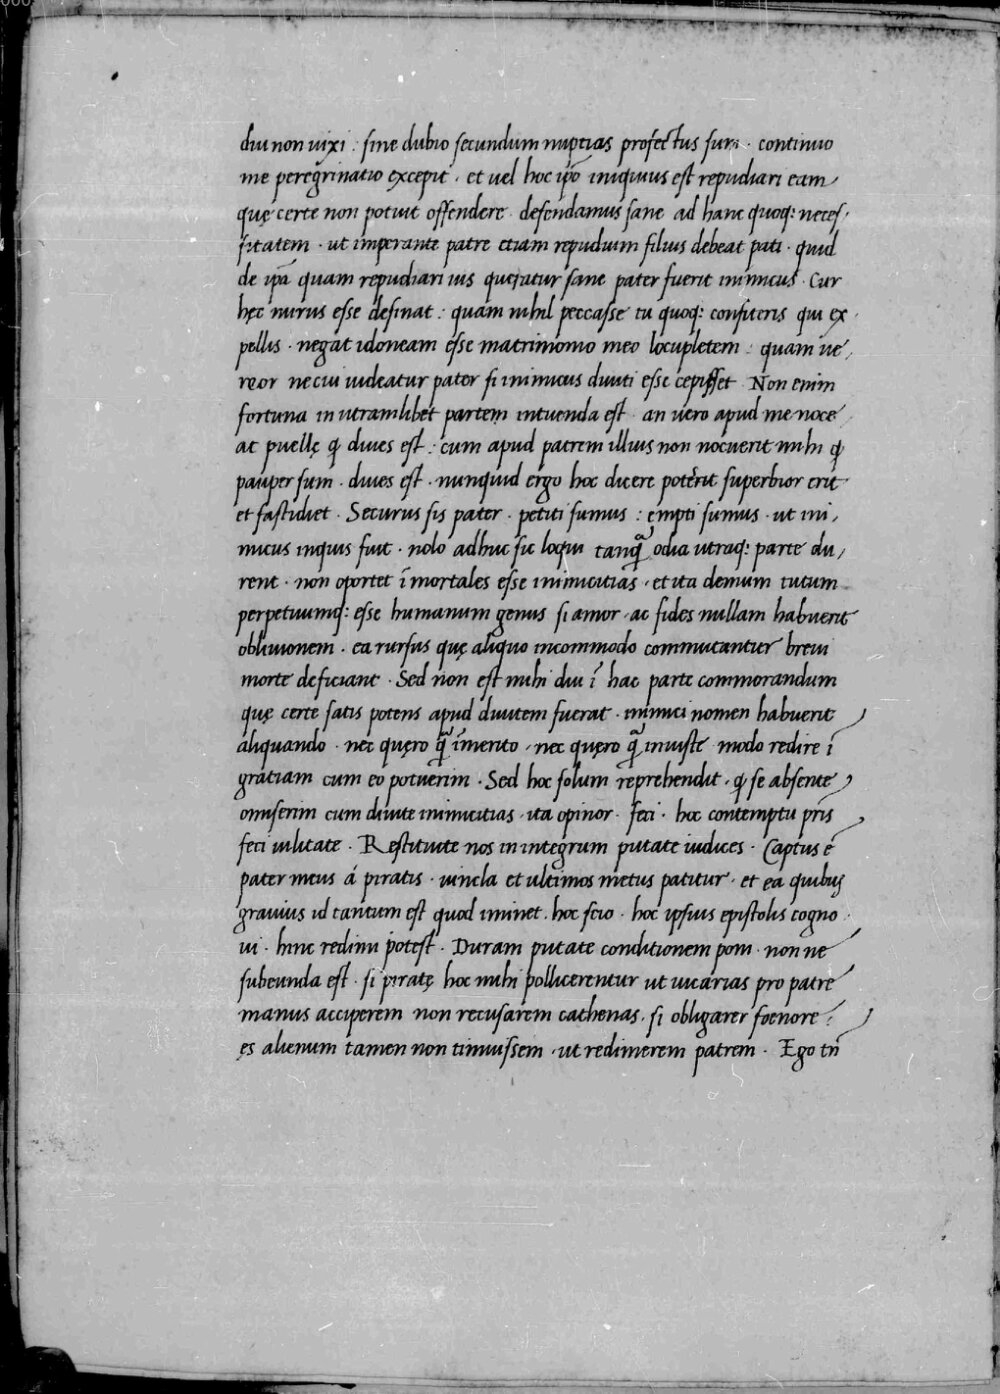 diu non uixi : sine dubio secundum nuptias profectus sum · continuo
me peregrinatio excepit · et uel hoc ip̄o iniquius est repudiari eam
quę certe non potuit offendere defendamus sane ad hanc quoq: neces,
sitatem · ut imperante patre etiam repudium filius debeat pati · quid
de ip̄a quam repudiari ius queratur sane pater fuerit inimicus · Cur
hęc nurus esse desinat : quam nihil peccasse tu quoq: confiteris qui ex
pellis · negat idoneam esse matrimonio meo locupletem : quam ue,
reor ne cui uideatur pater si inimicus diuiti esse cępisset Non enim
fortuna in utramlibet partem intuenda est · an uero apud me noce,
at puellę ꝙ diues est : cum apud patrem illius non nocuerit mihi ꝙ
pauper sum · diues est · nunquid ergo hoc dicere poterit superbior erit
et fastidiet · Securus sis pater · petiti sumus : empti sumus · ut ini,
micus inquis fuit · nolo adhuc sic loqui tanq̃ odia utraq: parte du,
rent · non oportet ī mortales esse inimicitias · et ita demum tutum
perpetuumq: esse humanum genus si amor · ac fides nullam habuerit
obliuionem · ea rursus quę aliquo incommodo commutantur breui
morte deficiant · Sed non est mihi diu ī hac parte commorandum
quę certe satis potens apud diuitem fuerat · inimici nomen habuerit
aliquando · nec quęro q̃ īmerito · nec quęro q̃ inuiste modo redire ī
gratiam cum eo potuerim · Sed hoc solum reprehendit · ꝙ se absente
omiserim cum diuite inimicitias · ita opinor · feci · hoc contemptu pr̄is
feci uilitate · Restituite nos in integrum putate iudices · Captus ē
pater meus á piratis · uincla et ultimos metus patitur · et ea quibus
grauius id tantum est quod iminet · hoc scio · hoc ipsius epistolis cogno
ui · hinc redimi potest · Duram putate conditionem poni · non ne
subeunda est · si piratę hoc mihi pollicerentur ut uicarias pro patre
manus acciperem non recusarem cathenas · si obligarer foenore :
ęs alienum tamen non timuissem · ut redimerem patrem · Ego tn̄